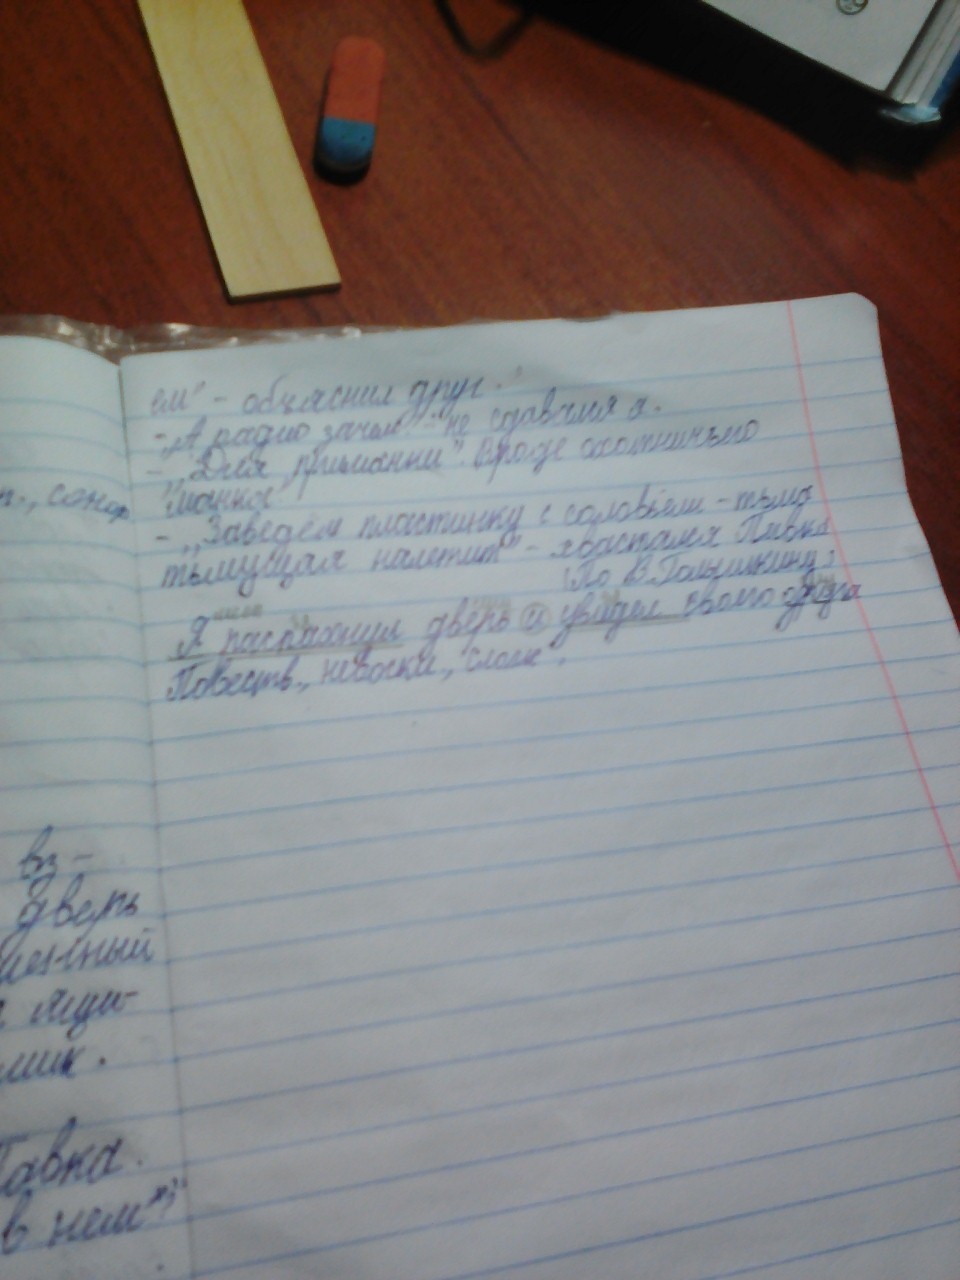 ем" - объяснил друг.
- „А радио зачем? - не сдавался я.
- „Для приманки". Вроде охотничьего
"манка".
- „Заведём пластинку с соловьём - тьма
тьмущая налетит" - хвастался Павка
(По В.Голышкину)
Я распахнул дверь и увидел своего друга
Повеств., невоскл., слож.
вз-
дверь
мик.
Павка.
в нем"?